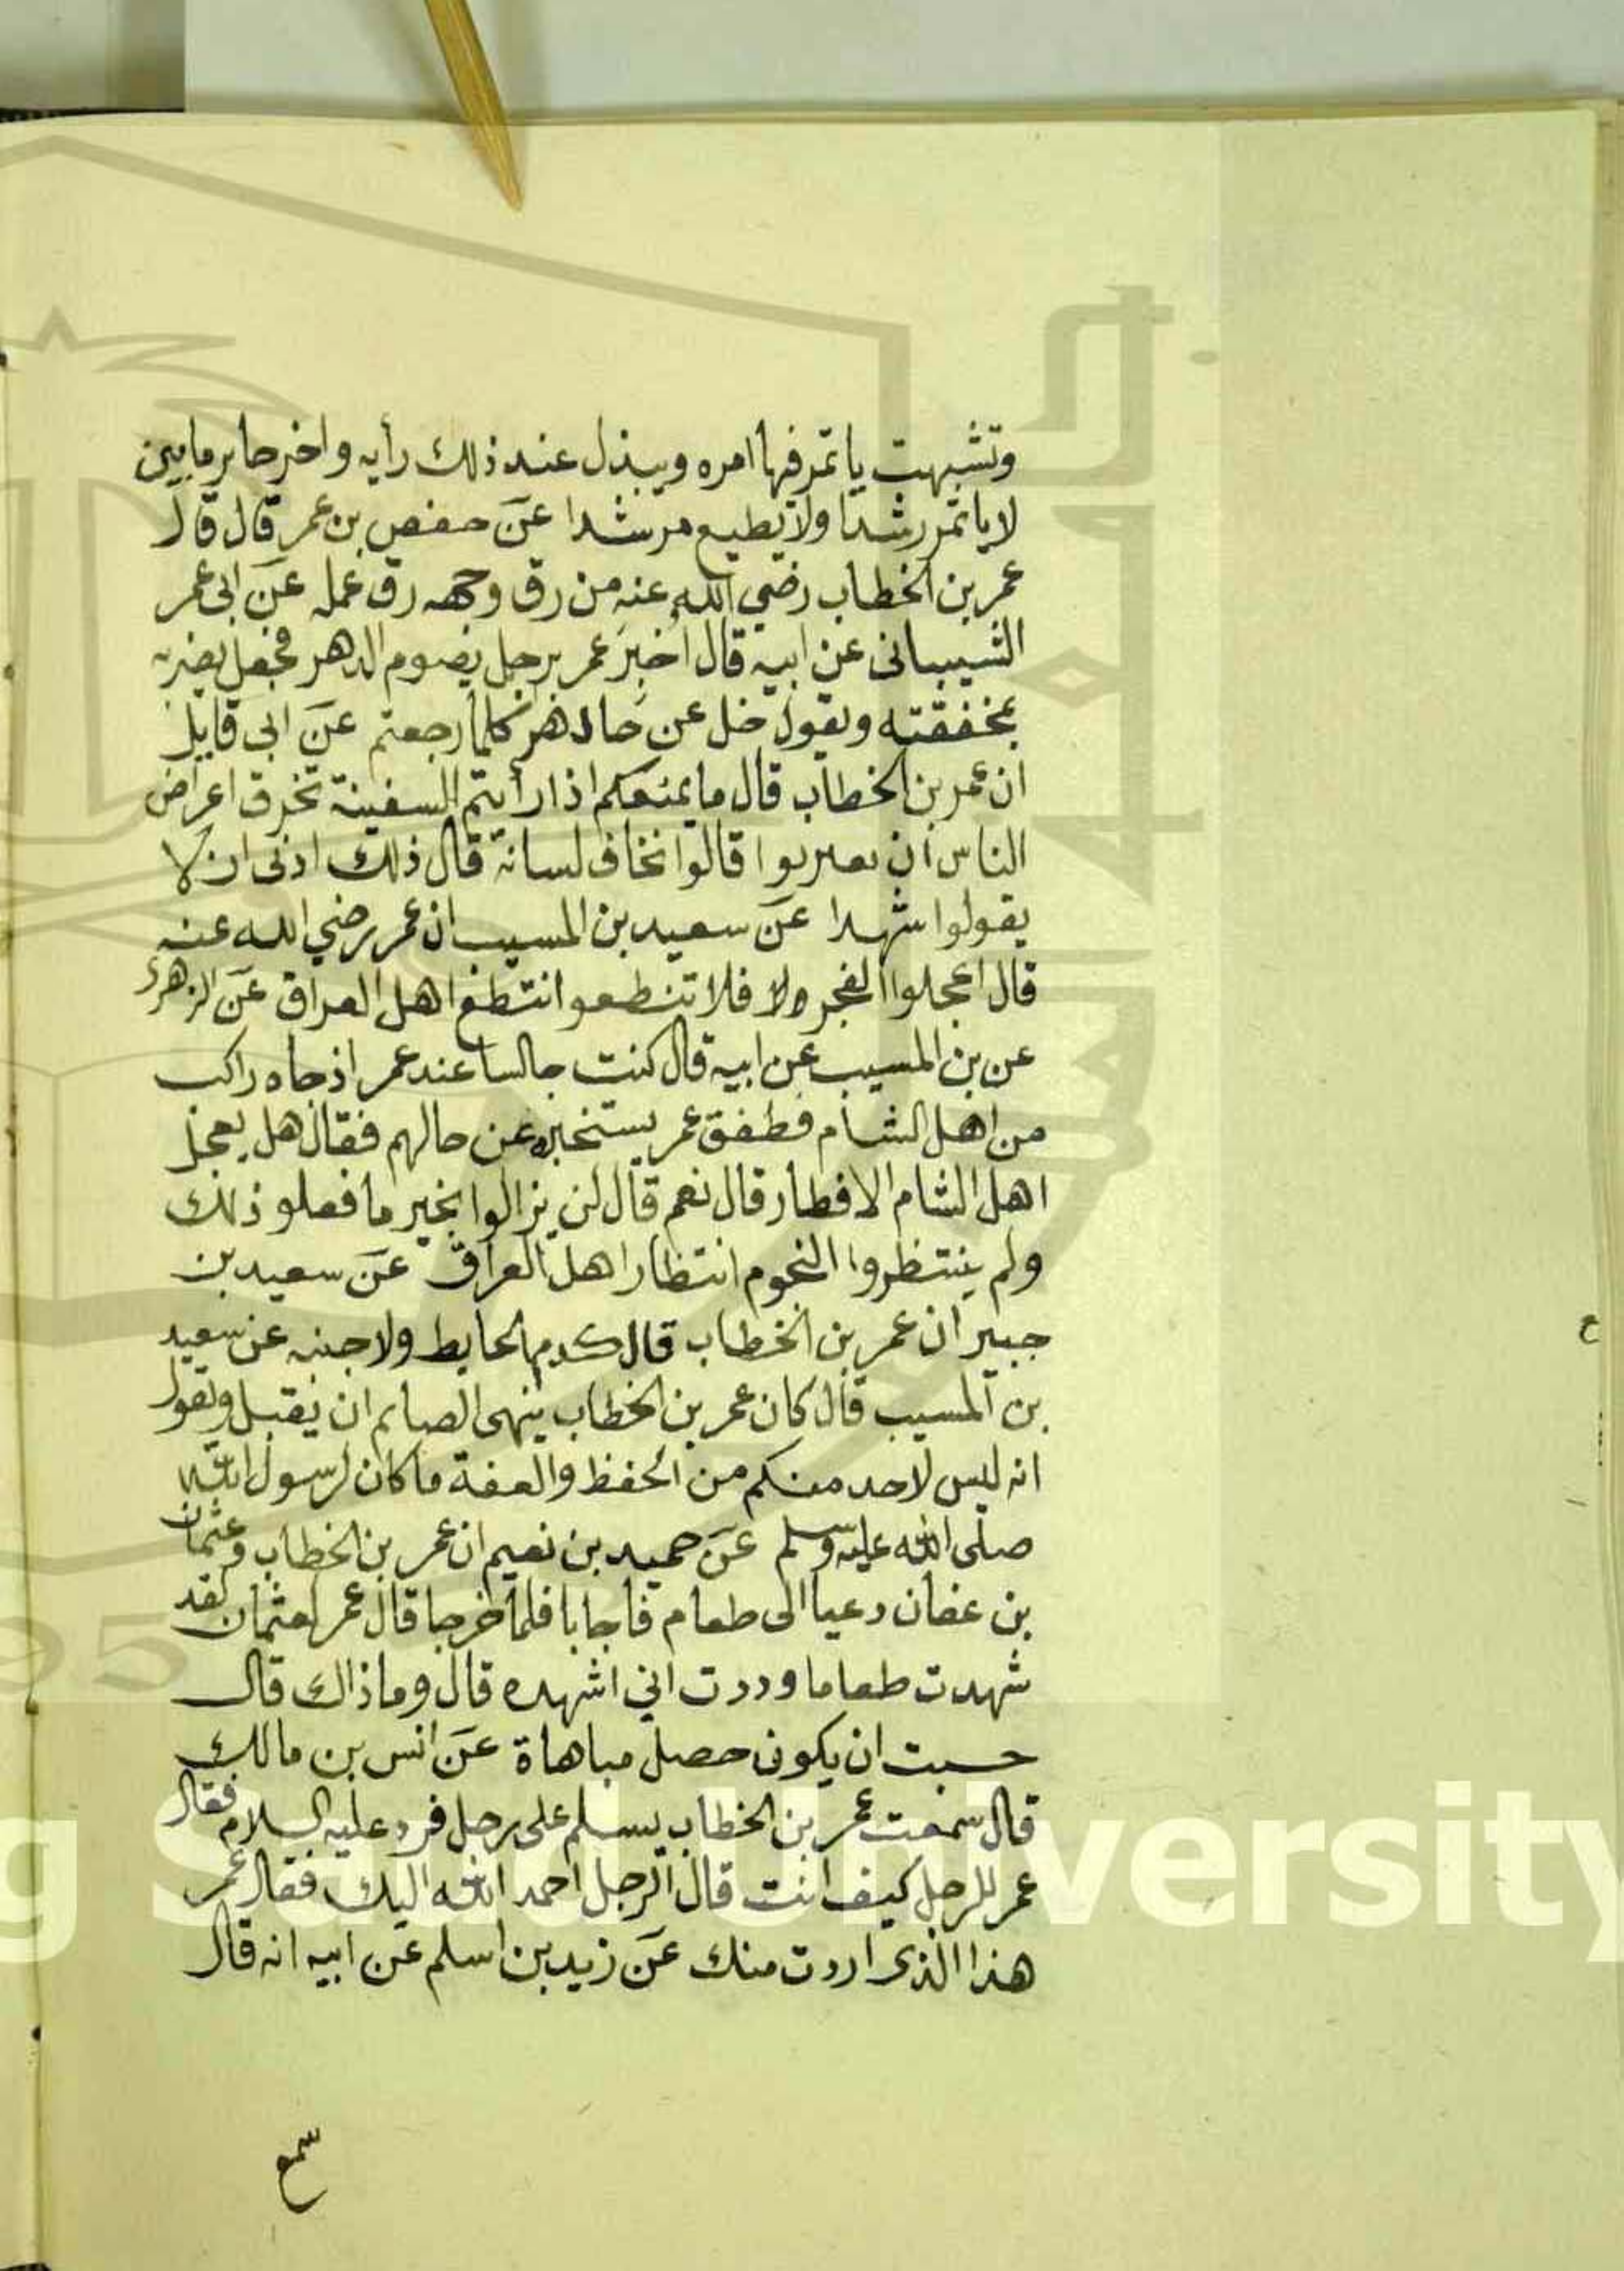 وتشبهت ياتمر فيها امره ويبذل عند ذلك رأيه واخر حاير مايين
لا ياتمر رشدا ولا يطيع مرشدا عن حفص بن عمر قال قال
عمر بن الخطاب رضي الله عنه من رق وجهه رق عمله عن ابى عمر
الشيبانى عن ابيه قال أخبر عمر برجل يصوم الدهر فجعل يضربه
بمخفقته ويقول خل عن كلما رجعتم عن ابى قايل
ان عمر بن الخطاب قال ما يمنعكم اذا رأيتم السفينة تخرق اعراض
الناس ان تعربوا قالوا نخاف لسانه قال ذلك ادنى ان لا
يقولوا شهدا عن سعيد بن المسيب ان عمر رضي الله عنه
قال اعجلوا الفجر ولا فلا تنطعوا انتطع اهل العراق عن الزهرى
عن بن المسيب عن ابيه قال كنت جالسا عند عمر اذ جاه راكب
من اهل الشام فطفق عمر يستخبره عن حالهم فقال هل يعجل
اهل الشام الافطار قال نعم قال لن يزالوا بخير ما فعلو ذلك
ولم ينتظروا النجوم انتظار اهل العراق عن سعيد بن
جبير ان عمر بن الخطاب قال الحايط ولا جنبه عن سعيد
بن المسيب قال كان عمر بن الخطاب ينهى الصايم ان يقبل ويقول
انه ليس لاحد منكم من الحفظ والعفة ما كان لرسول الله
صلى الله عليه وسلم عن حميد بن نعيم ان عمر بن الخطاب وعثمان
بن عفان دعيا الى طعام فاجابا فلما خرجا قال عمر لعثمان لقد
شهدت طعاما وددت اني اشهده قال وما ذاك قال
حسبت ان يكون حصل مباهاة عن انس بن مالك
قال سمعت عمر بن الخطاب يسلم على رجل فرد عليه السلام فقال
عمر للرجل كيف انت قال الرجل احمد الله اليك فقال عمر
هذا الذى اردت منك عن زيد بن اسلم عن ابيه انه قال
سمع
g Saud University